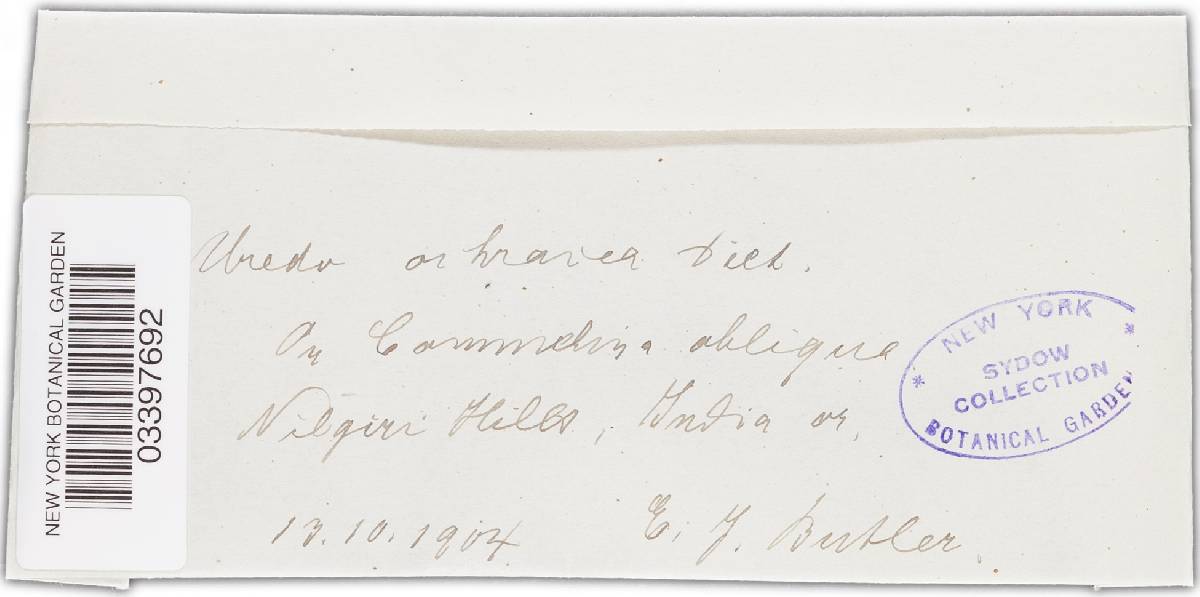 Uredo ochracea Diet.
On Commelina obliqua
Nilgiri Hills, India or.
13.10.1904 E. J. Butler
NEW YORK BOTANICAL GARDEN
03397692
NEW YORK
SYDOW
COLLECTION
BOTANICAL GARDEN